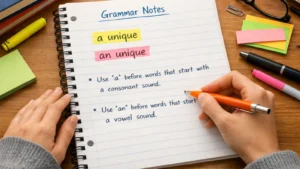 Grammar Notes
a unique
an unique
• Use "a" before words that start with
a consonant sound.
• Use "an" before words that start
a vowel sound.